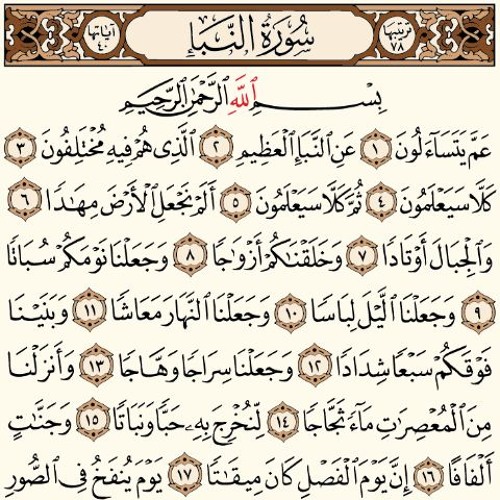 ترتيبها ٧٨ سُورَةُ النَّبَإِ آياتها ٤٠
بِسْمِ ٱللَّهِ ٱلرَّحْمَٰنِ ٱلرَّحِيمِ
عَمَّ يَتَسَآءَلُونَ ١ عَنِ ٱلنَّبَإِ ٱلْعَظِيمِ ٢ ٱلَّذِى هُمْ فِيهِ مُخْتَلِفُونَ ٣
كَلَّا سَيَعْلَمُونَ ٤ ثُمَّ كَلَّا سَيَعْلَمُونَ ٥ أَلَمْ نَجْعَلِ ٱلْأَرْضَ مِهَٰدًا ٦
وَٱلْجِبَالَ أَوْتَادًا ٧ وَخَلَقْنَٰكُمْ أَزْوَٰجًا ٨ وَجَعَلْنَا نَوْمَكُمْ سُبَاتًا
٩ وَجَعَلْنَا ٱلَّيْلَ لِبَاسًا ١٠ وَجَعَلْنَا ٱلنَّهَارَ مَعَاشًا ١١ وَبَنَيْنَا
فَوْقَكُمْ سَبْعًا شِدَادًا ١٢ وَجَعَلْنَا سِرَاجًا وَهَّاجًا ١٣ وَأَنزَلْنَا
مِنَ ٱلْمُعْصِرَٰتِ مَآءً ثَجَّاجًا ١٤ لِّنُخْرِجَ بِهِۦ حَبًّا وَنَبَاتًا ١٥ وَجَنَّٰتٍ
أَلْفَافًا ١٦ إِنَّ يَوْمَ ٱلْفَصْلِ كَانَ مِيقَٰتًا ١٧ يَوْمَ يُنفَخُ فِى ٱلصُّورِ